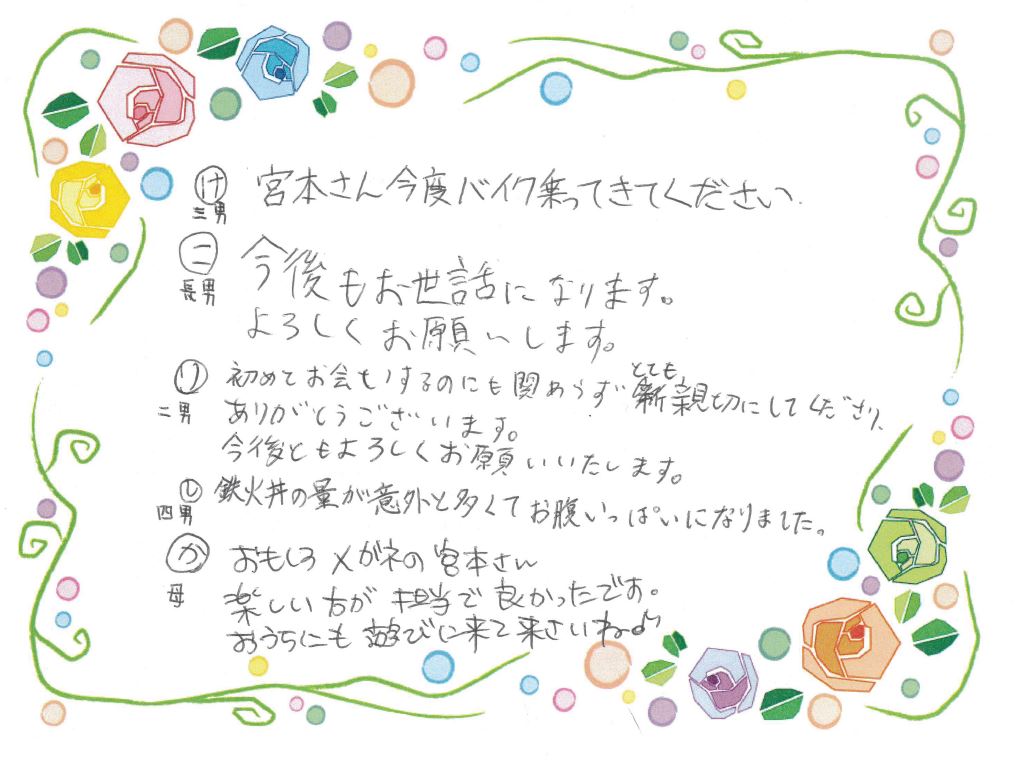 け 宮本さん今度バイク乗ってきてください.
三男
ニ 今後もお世話になります。
長男
よろしくお願いします。
り 初めてお会いするのにも関わらずとても親切にしてくださり、
二男 ありがとうございます。
今後ともよろしくお願いいたします。
し 鉄火丼の量が意外と多くてお腹いっぱいになりました。
四男
か おもしろメガネの宮本さん
母 楽しい方が担当で良かったです。
おうちにも遊びに来て来さいね♪